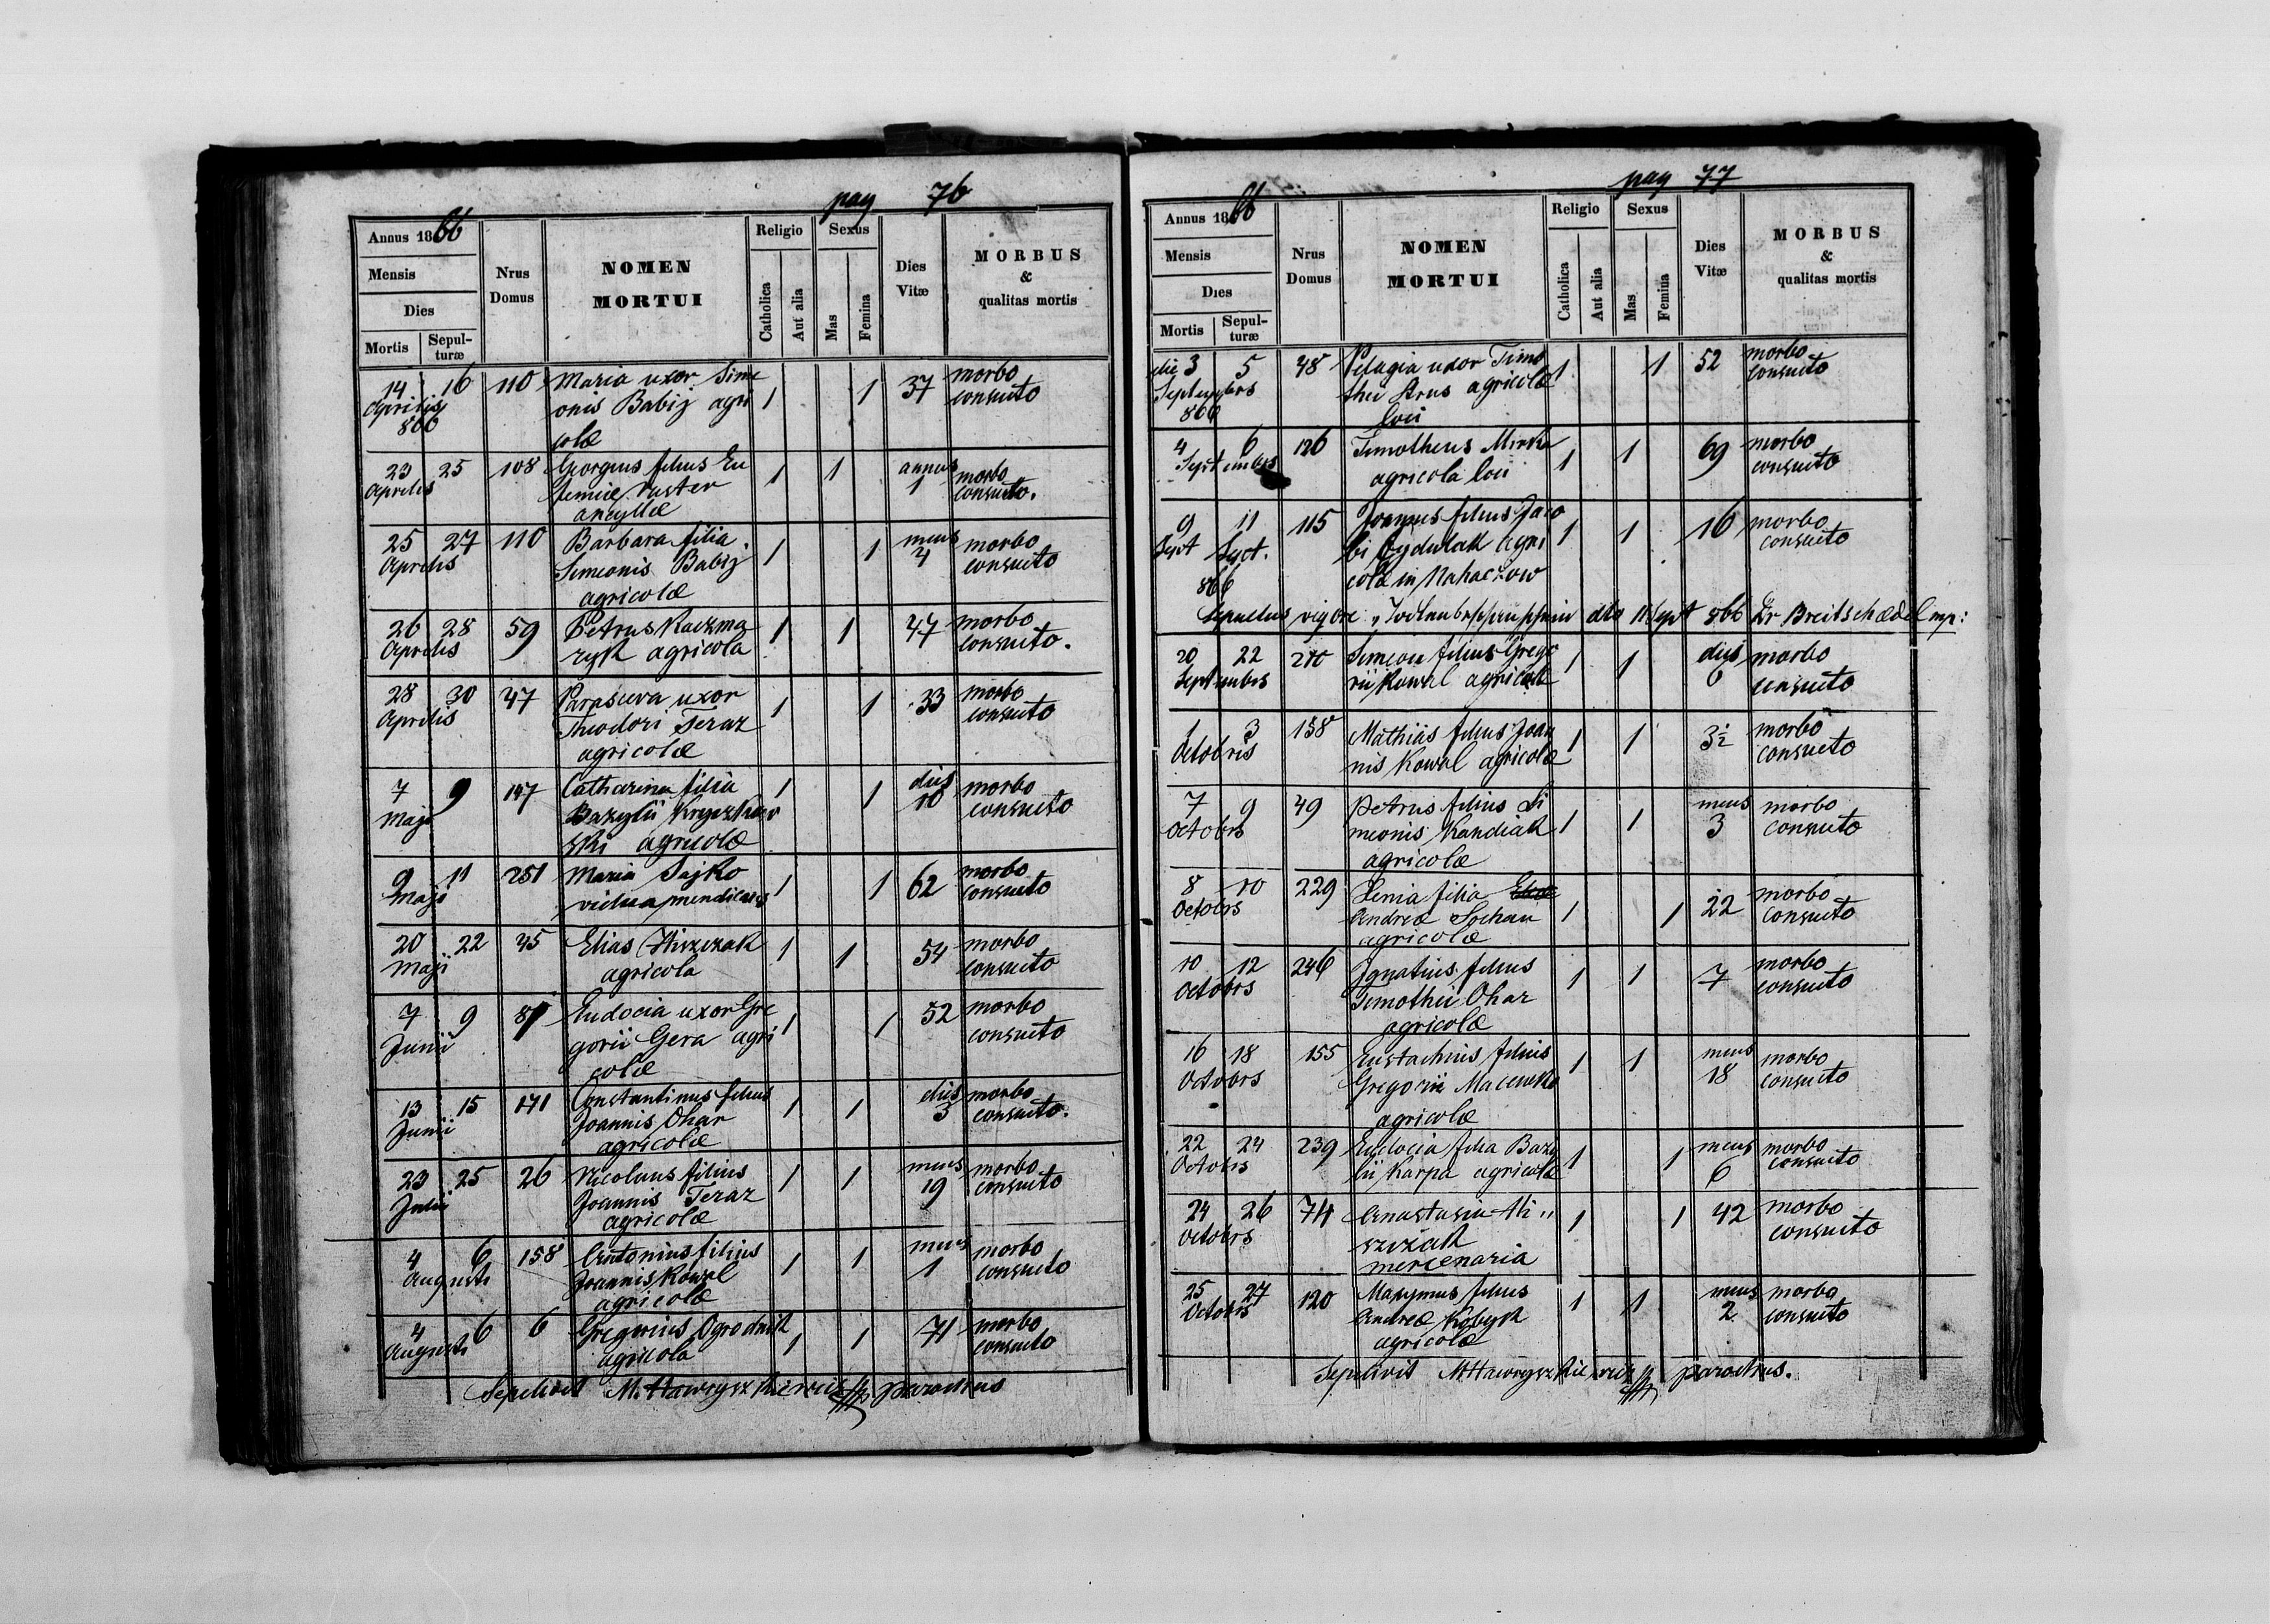 pag 76
Annus 1866
Mensis
Dies
Mortis
Sepul-
turæ
Nrus
Domus
NOMEN
MORTUI
Religio
Catholica
Aut alia
Sexus
Mas
Femina
Dies
Vitæ
MORBUS
&
qualitas mortis
14 16 110 Maria uxor Sime 1 1 37 morbo
Aprilis onis Babij agri consueto
866 colæ
23 25 108 Georgius filius Eu 1 1 annus morbo
Aprilis femiæ Puster 1 consueto.
ancyllæ
25 27 110 Barbara filia 1 1 mens morbo
Aprilis Simeonis Babij 4 consueto
agricolæ
26 28 59 Petrus Kaczma 1 1 47 morbo
Aprilis ryk agricola consueto.
28 30 47 Parasceva uxor 1 1 33 morbo
Aprilis Theodori Teraz consueto
agricolæ
7 9 147 Catharina filia 1 1 dies morbo
Maji Bazylii 10 consueto
ski agricolæ
9 11 251 Maria Sajko 1 1 62 morbo
Maji vidua mendicans consueto
20 22 45 Elias 1 1 54 morbo
Maji agricola consueto
7 9 Eudocia uxor Gre 1 1 52 morbo
Junii gorii Gera agri consueto
colæ
13 15 171 Constantinus filius 1 1 dies morbo
Junii Joannis Ohar 3 consueto.
agricolæ
23 25 26 Nicolaus filius 1 1 mens morbo
Joannis Teraz 19 consueto
agricolæ
4 6 158 Antonius filius 1 1 mens morbo
Augusti Joannis Kowal 1 consueto
agricolæ
4 6 6 Gregorius Ogrodnik 1 1 71 morbo
Augusti agricola consueto
Sepelivit M. Hawryszkiewicz parochus
pag 77
Annus 1866
Mensis
Dies
Mortis
Sepul-
turæ
Nrus
Domus
NOMEN
MORTUI
Religio
Catholica
Aut alia
Sexus
Mas
Femina
Dies
Vitæ
MORBUS
&
qualitas mortis
die 3 5 48 Pelagia uxor Timo 1 1 52 morbo
Septembrs thei Arus agricolæ consueto
866 loci
4 6 126 Timotheus Mirka 1 1 69 morbo
Septembrs agricola loci consueto
9 11 115 Joannes filius Jaco 1 1 16 morbo
Sept Sept. bi Cydulak agri consueto
866 colæ in Nahaczow
Sepultus vigore dto 11 Sept 866 Dr Breitschædel mp:
20 22 210 Simeon filius Grego 1 1 dies morbo
Septembrs rii Kowal agricolæ 6 consueto
1 3 158 Mathias filius Joan 1 1 3½ morbo
Octobris nis Kowal agricolæ consueto
7 9 49 Petrus filius Si 1 1 mens morbo
Octobrs meonis Kandiak 3 consueto
agricolæ
8 10 229 Xenia filia 1 1 22 morbo
Octobrs Andreæ Sochan consueto
agricolæ
10 12 246 Ignatius filius 1 1 7 morbo
Octobrs Timothei Ohar consueto
agricolæ
16 18 155 Eustachius filius 1 1 mens morbo
Octobrs Gregorii Macewko 18 consueto
agricolæ
22 24 239 Eudocia filia Bazy 1 1 mens morbo
Octobris lii Karpa agricolæ 6 consueto
24 26 74 Anastasia Mi„ 1 1 42 morbo
Octobrs szczak consueto
mercenaria
25 27 120 Maxymus filius 1 1 mens morbo
Octobris Andreæ Kobyk 2 consueto
agricolæ
Sepelivit M. Hawryszkiewicz parochus.